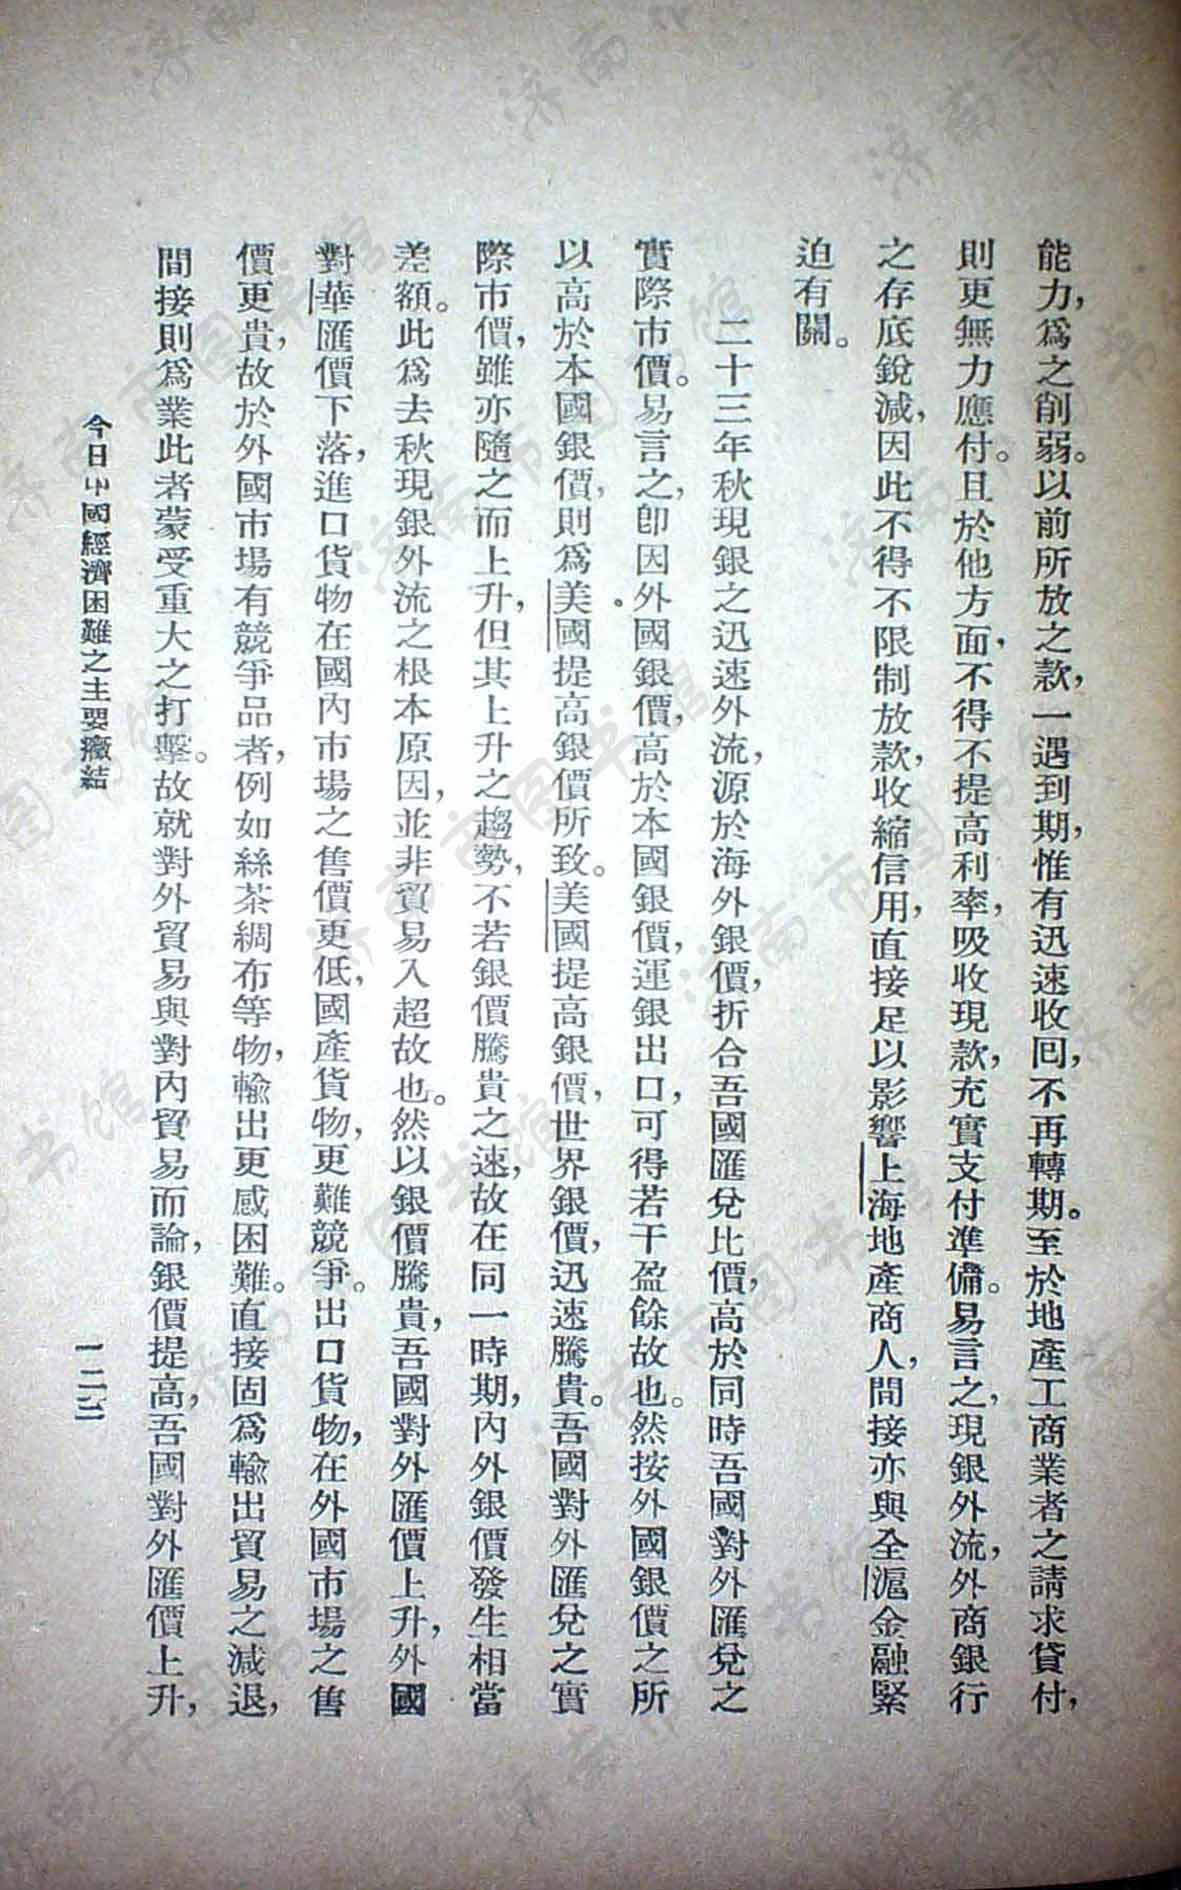 能力，爲之削弱。以前所放之款，一遇到期，惟有迅速收回，不再轉期。至於地產工商業者之請求貸付，
則更無力應付。且於他方面，不得不提高利率，吸收現款，充實支付準備。易言之，現銀外流，外商銀行
之存底銳減，因此不得不限制放款，收縮信用，直接足以影響上海地產商人，間接亦與全滬金融緊
迫有關。
二十三年秋現銀之迅速外流，源於海外銀價，折合吾國匯兌比價，高於同時吾國對外匯兌之
實際市價。易言之，卽因外國銀價，高於本國銀價，運銀出口，可得若干盈餘故也。然按外國銀價之所
以高於本國銀價，則爲美國提高銀價所致。美國提高銀價，世界銀價，迅速騰貴。吾國對外匯兌之實
際市價，雖亦隨之而上升，但其上升之趨勢，不若銀價騰貴之速，故在同一時期，內外銀價發生相當
差額。此爲去秋現銀外流之根本原因，並非貿易入超故也。然以銀價騰貴，吾國對外匯價上升，外國
對華匯價下落，進口貨物在國內市場之售價更低，國產貨物，更難競爭。出口貨物，在外國市場之售
價更貴，故於外國市場有競爭品者，例如絲茶綢布等物，輸出更感困難。直接固爲輸出貿易之減退，
間接則爲業此者蒙受重大之打擊。故就對外貿易與對內貿易而論，銀價提高，吾國對外匯價上升，
今日中國經濟困難之主要癥結
一二三
济南市图书馆